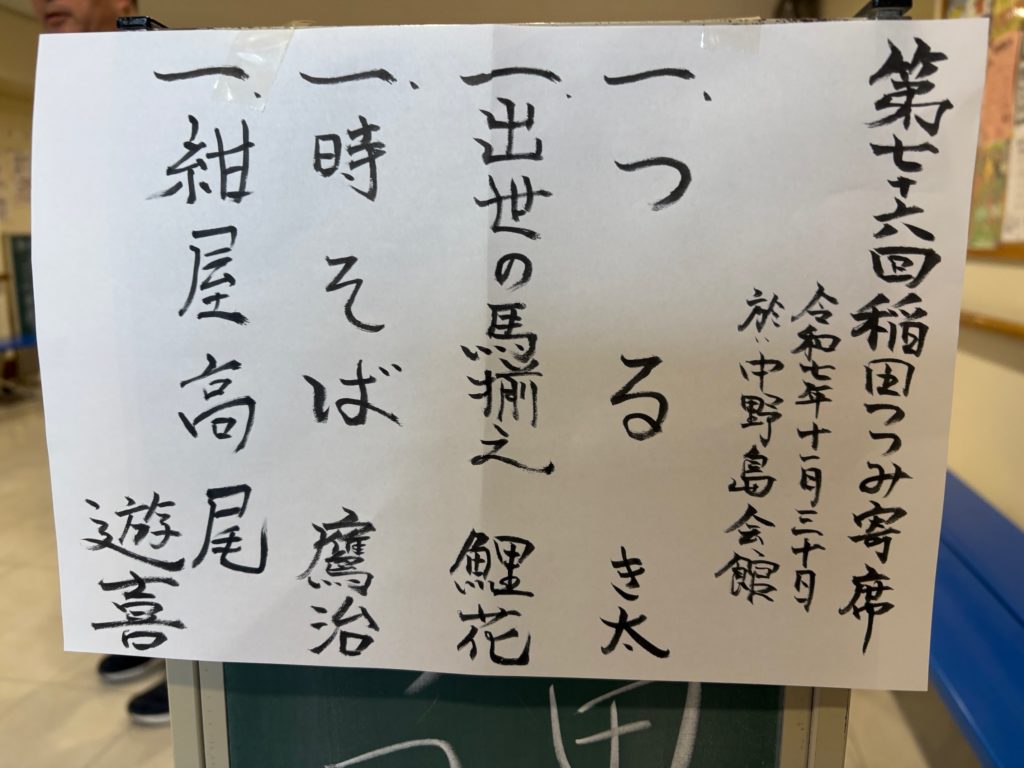 第七十六回稲田つつみ寄席
令和七年十一月三十日
於:中野島会館
一、つる き太
一、出世の馬揃え 鯉花
一、時そば 鷹治
一、紺屋高尾
遊喜